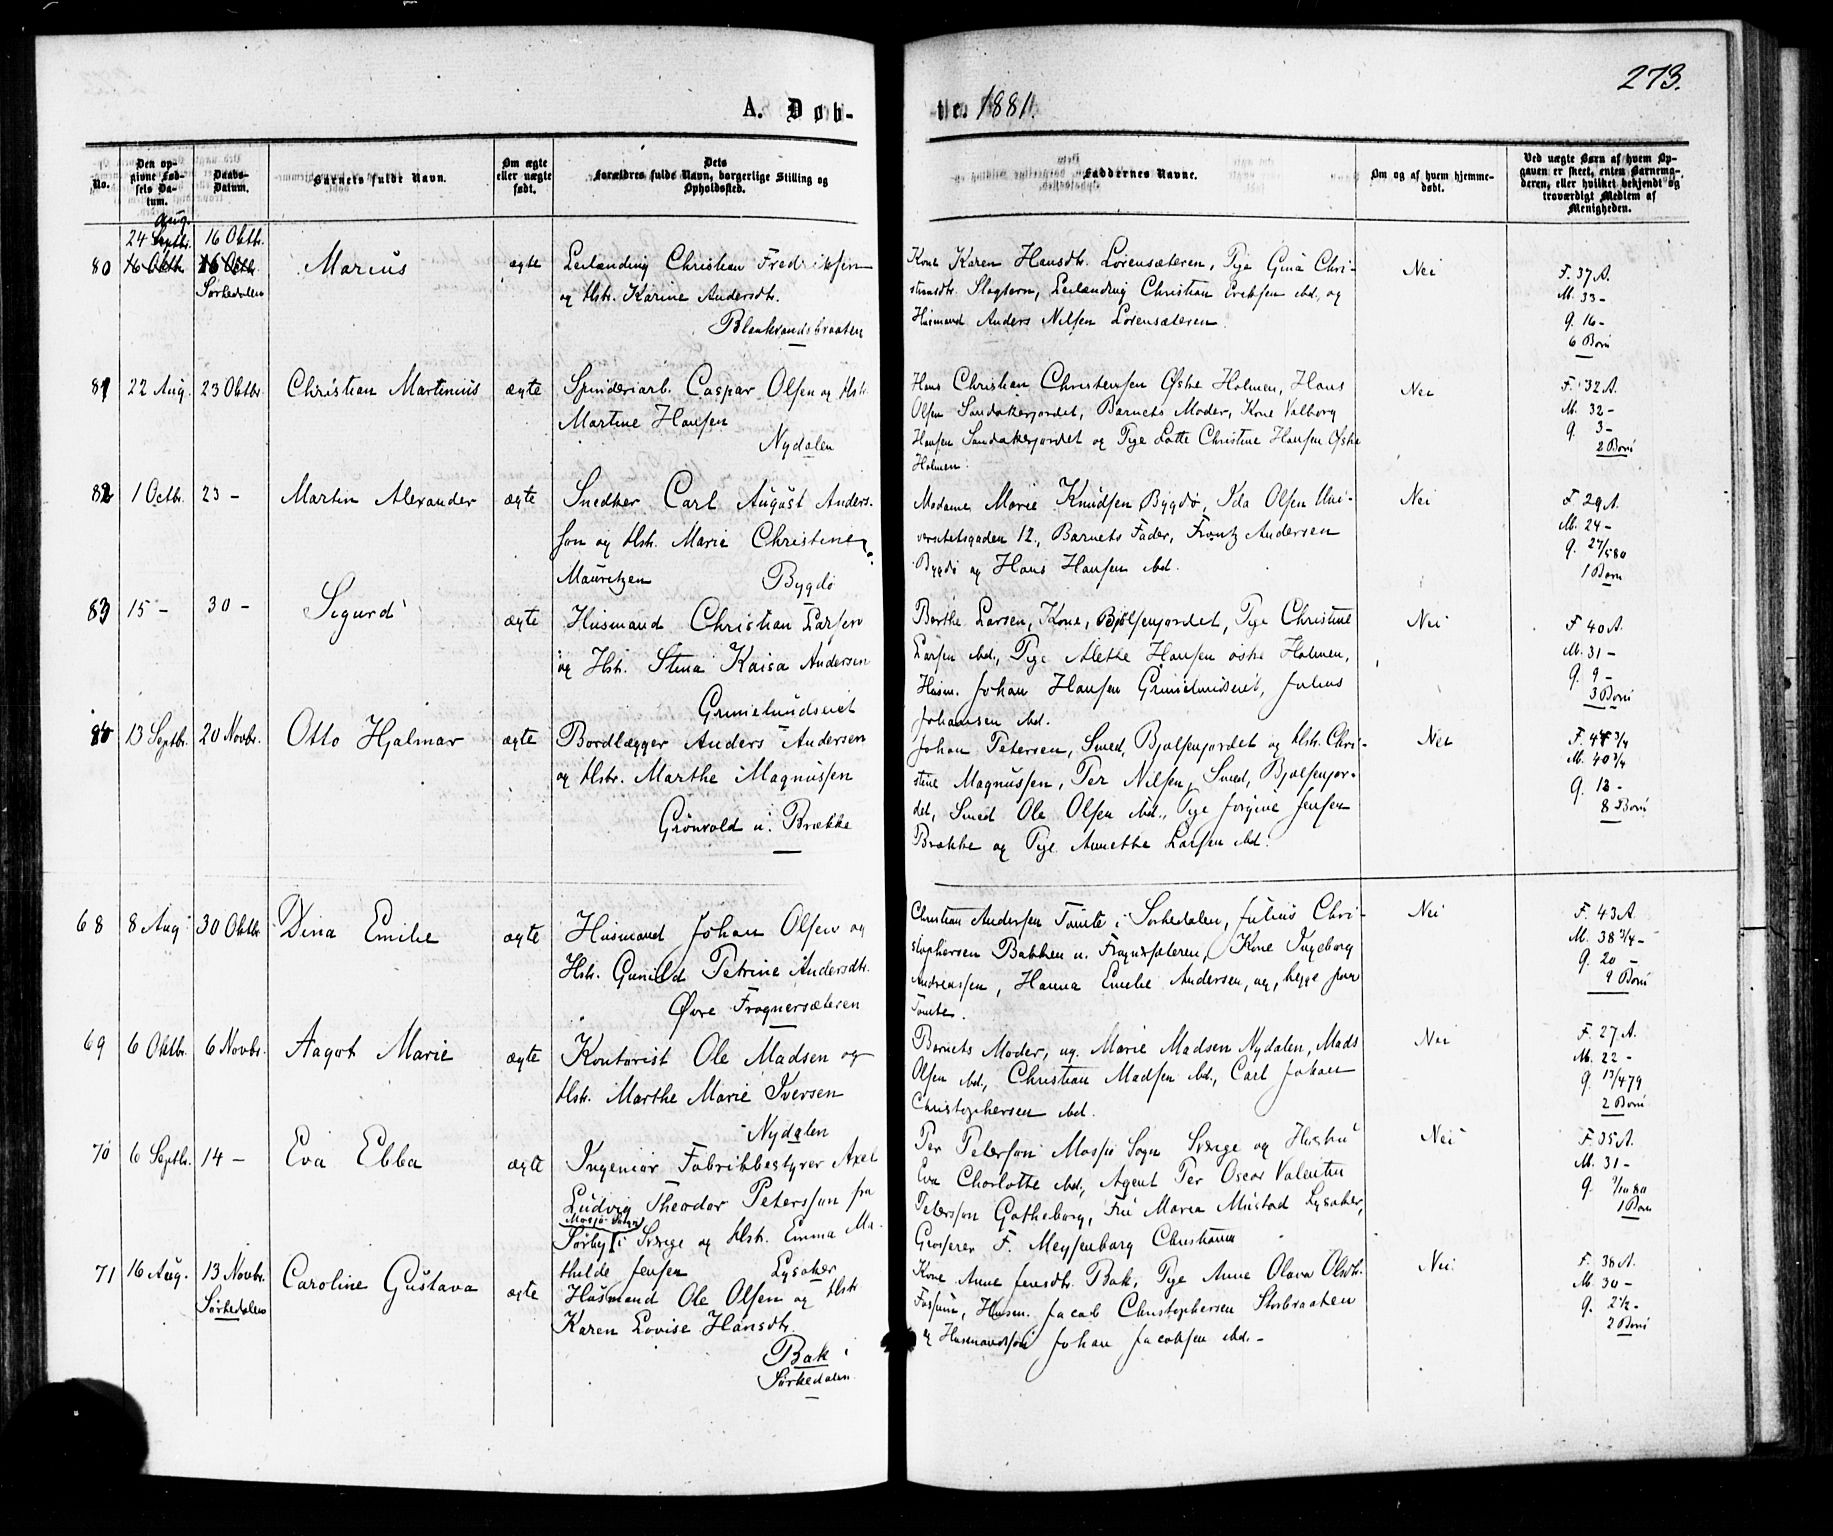 273.
A. Døb-
te. 1881.
No.
Den op-
givne Fød-
sels Da-
tum.
Daabs-
Datum.
Barnets fulde Navn.
Om ægte
eller uægte
født.
Dets
Forældres fulde Navn, borgerlige Stilling og
Opholdssted.
Faddernes Navne.
Om og af hvem hjemme-
døbt.
Ved uægte Børn af hvem Op-
gaven er skeet, enten Barnemo-
deren, eller hvilket bekjendt og
troværdigt Medlem af
Menigheden.
Aug.
24 Septbr. 16 Oktbr.
80 16 Oktbr. 16 Oktbr. Marius ægte Leilænding Christian Fredriksen
Sørkedalen og Hstr. Karine Andersdtr.
Blankvandsbraaten
Kone Karen Hansdtr. Lorensæteren, Pige Gina Chri-
stiansdtr. Slagtern, Leilænding Christian Eriksen ibd., og
Husmand Anders Nilsen Lorensæteren.
Nei
F. 37 A.
M. 33 -
g. 16 -
6 Børn
81 22 Aug. 23 Oktbr. Christian Martinius ægte Spinderiarb. Caspar Olsen og Hstr.
Martine Hansen
Nydalen
Hans Christian Christensen Østre Holmen, Hans
Olsen Sandakerjordet, Barnets Moder, Kone Valborg
Hansen Sandakerjordet og Pige Lotte Christine Hansen Østre
Holmen.
Nei
F. 32 A.
M. 32 -
g. 3 -
2 Børn
82 1 Octbr. 23 - Martin Alexander ægte Snedker Carl August Anders-
son og Hstr. Marie Christine
Mauritzen Bygdø
Madame Marie Knudsen Bygdø, Ida Olsen Uni-
versitetsgaden 12., Barnets Fader, Frantz Andersen
Bygdø og Hans Hansen ibd.
Nei
F. 29 A.
M. 24 -
g. 27/5 80
1 Barn
83 15 - 30 - Sigurd ægte Husmand Christian Larsen
og Hstr. Stina Kaisa Andersen
Grimelundseiet
Berthe Larsen, Kone, Bjølsenjordet, Pige Christine
Larsen ibd., Pige Alethe Hansen østre Holmen,
Husm. Johan Hansen Grimelundseiet, Julius
Johansen ibd.
Nei
F. 40 A.
M. 31 -
g. 9 -
3 Børn
84 13 Septbr. 20 Novbr. Otto Hjalmar ægte Bordlægger Anders Andersen
og Hstr. Marthe Magnussen
Grønvold u. Brække
Johan Petersen, Smed, Bjølsenjordet og Hstr. Chri-
stine Magnussen, Per Nilsen, Smed, Bjølsenjor-
det, Smed Ole Olsen ibd., Pige Jørgine Jensen
Brække og Pige Annethe Larsen ibd.
Nei
M. 40 3/4
g. 12 -
8 Børn
68 8 Aug. 30 Oktbr. Dina Emilie ægte Husmand Johan Olsen og
Hstr. Gunild Petrine Andersdtr.
Øvre Frognersæteren
Christian Andersen Tomte i Sørkedalen, Julius Chri-
stophersen Bakken u. Frognersæteren, Kone Ingeborg
Andreassen, Hanna Emilie Andersen, ug., begge paa
Tomte.
Nei
F. 43 A.
M. 38 3/4 -
g. 20 -
9 Børn
69 6 Oktbr. 6 Novbr. Aagot Marie ægte Kontorist Ole Madsen og
Hstr. Marthe Marie Iversen
Nydalen
Barnets Moder, ug. Marie Madsen Nydalen, Mads
Olsen ibd., Christian Madsen ibd., Carl Johan
Christophersen ibd.
Nei
F. 27 A.
M. 22 -
g. 13/4 79
2 Børn
70 6 Septbr. 14 - Eva Ebba ægte Ingeniør Fabrikbestyrer Axel
Ludvig Theodor Petersson fra
Mosjø Sogn
Sørby i Sverige og Hstr. Emma Ma-
thilde Jensen Lysaker
Per Petersson Mosjø Sogn Sverige og Hustru
Eva Charlotte ibd., Agent Per Oscar Valentin
Petersson Gøtheborg, Fru Maria Mustad Lysaker,
Grosserer F. Meyssenborg Christiania
Nei
F. 35 A.
M. 31 -
1 Barn
71 16 Aug. 13 Novbr. Caroline Gustava ægte Husmand Ole Olsen og Hstr.
Sørkedalen Karen Lovise Hansdtr.
Bak i
Sørkedalen
Kone Anne Jensdtr. Bak, Pige Anne Olava Olsdtr.
Fossum, Husm. Jacob Christophersen Storbraaten
og Husmandssøn Johan Jacobsen ibd. -
Nei
F. 38 A.
M. 30 -
g. 2 1/2 -
2 Børn